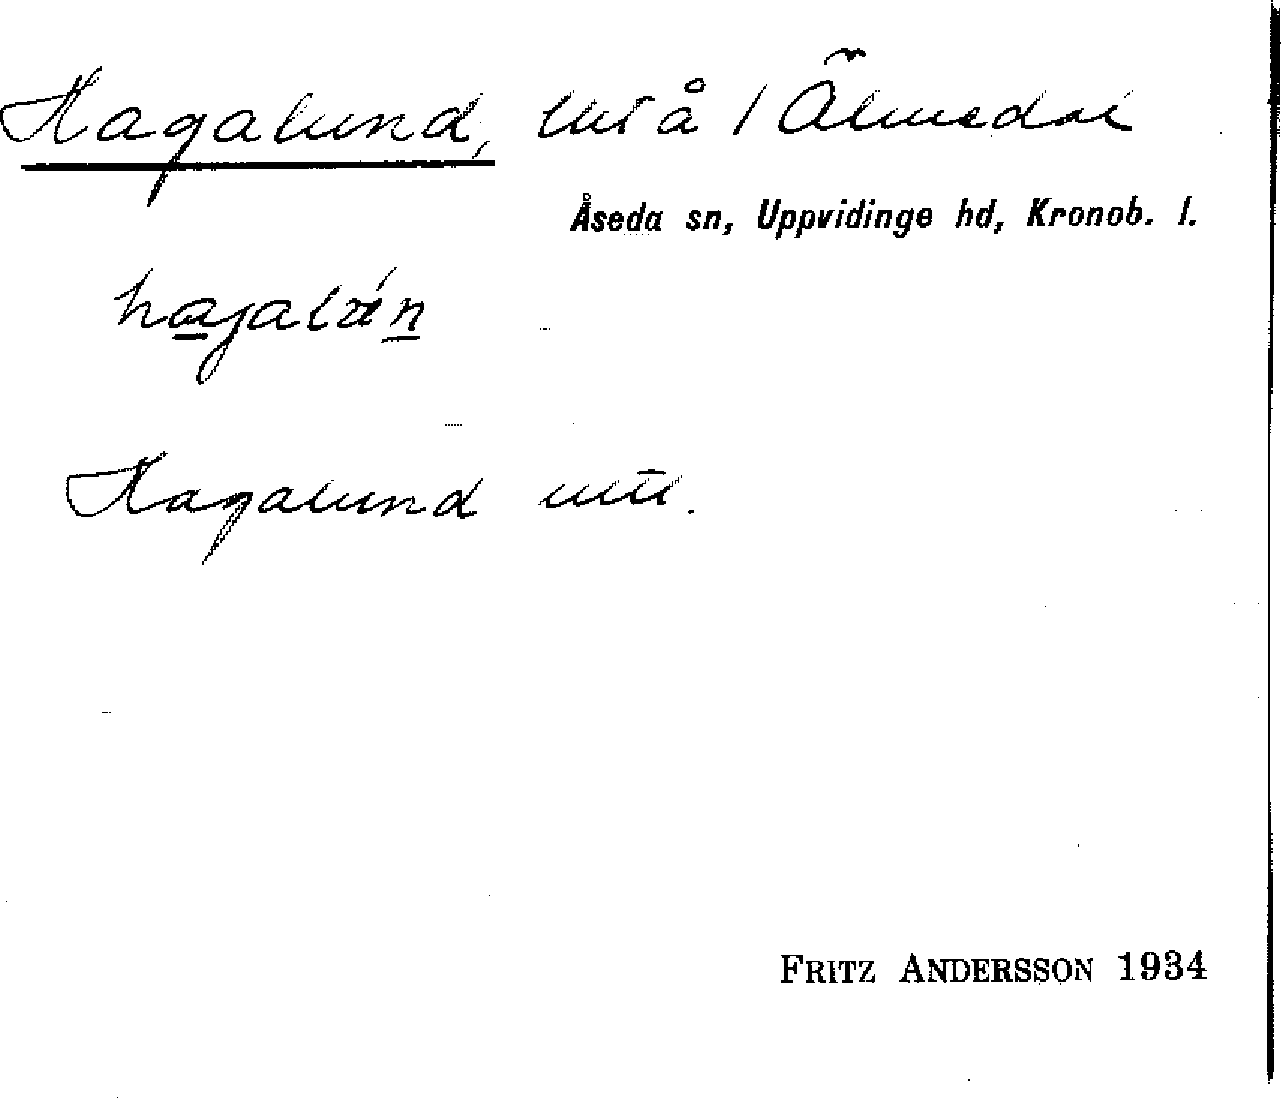 Hagalund, utr å / Älmedal
Åseda sn, Uppvidinge hd, Kronob. l.
Hagalund
FRITZ ANDERSSON 1934